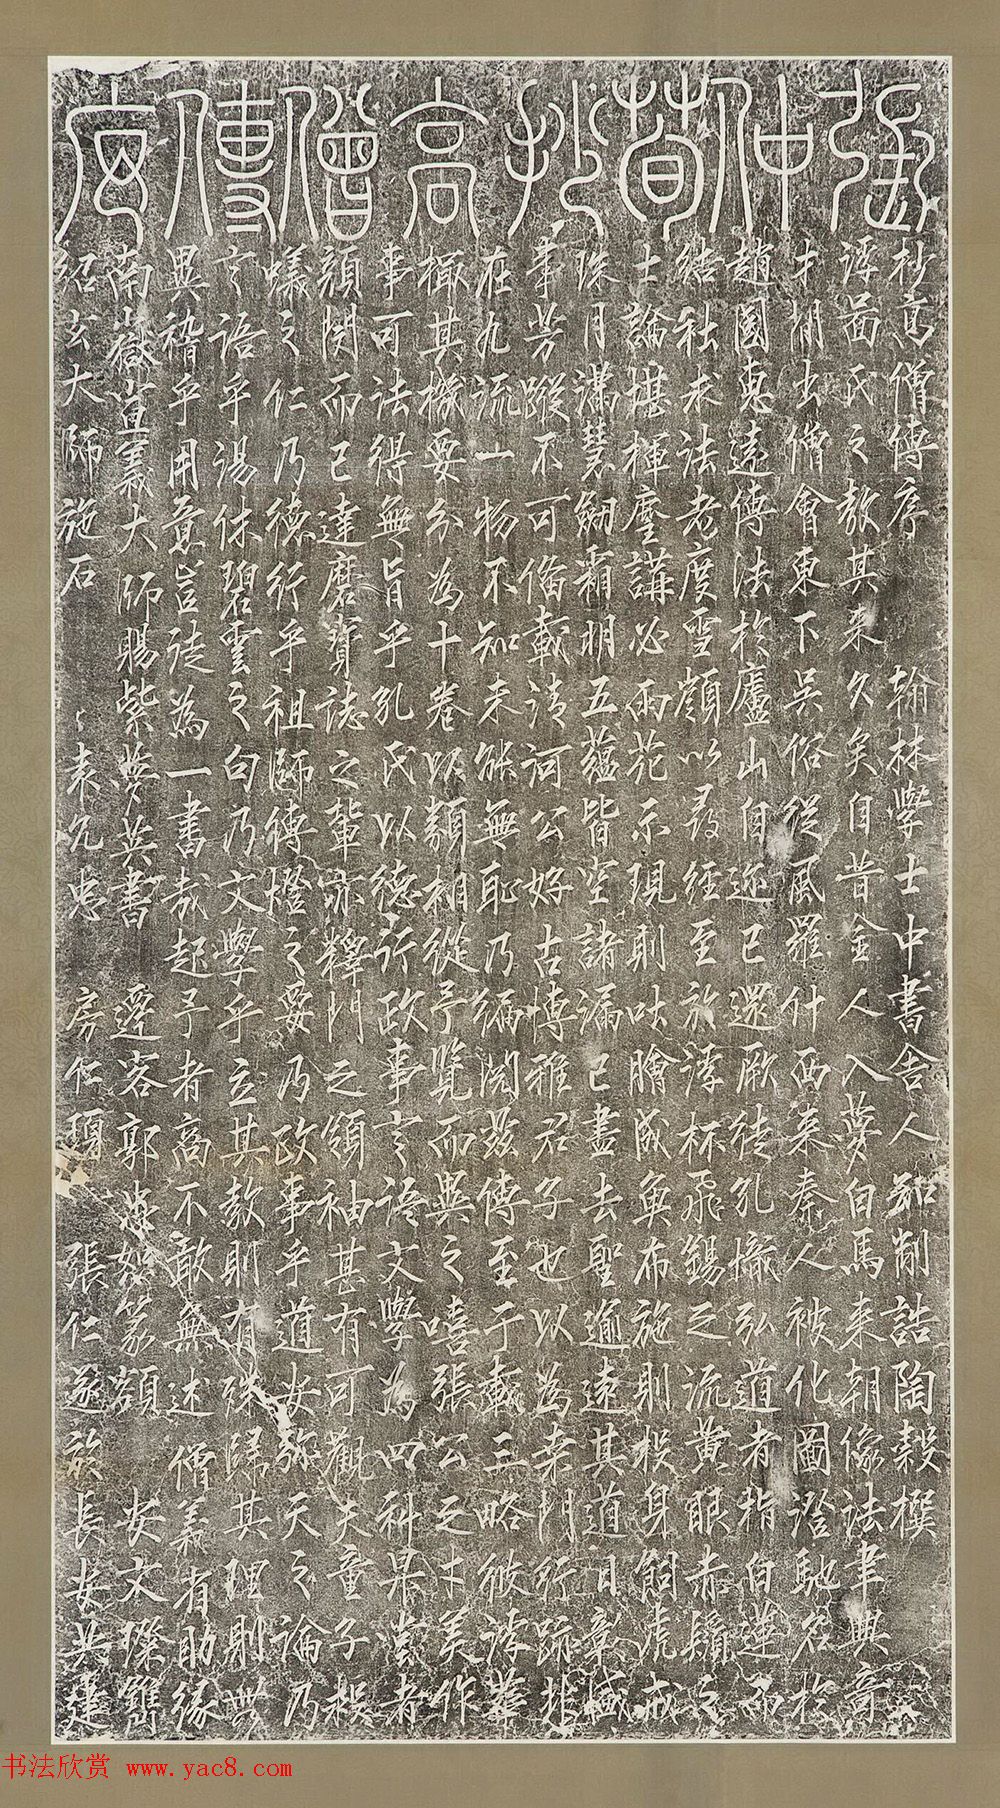 張仲荀抄高僧傳序
抄高僧傳序 翰林學士中書舍人知制誥陶穀撰
浮啚氏之教其來久矣自昔金人入夢白馬來朝像法聿興章
才間出僧會東下吳俗從風羅什西來秦人被化圖澄馳名於
趙國惠遠傳法於廬山自迩已還厥徒孔熾弘道者指白蓮而
結社求法者度雪嶺以尋經至於浮杯飛錫之流黃眼赤鬚之
士論堪揮麈講必雨花示現則呿膾成魚布施則投身飼虎戒
珠月滿慧劒霜明五蘊皆空諸漏已盡去聖逾遠其道日彰緘
事芳蹤不可俻載清河公好古博雅君子也以為桒門行跡
在九流一物不知未能無恥乃徧閱茲傳至于載三略彼浮華
樞其機要分為十卷以類相從予覽而異之嘻張公之才美作
事可法得無旨乎孔氏以德行政事言語文學為四科果者
顏閔而已達磨寶誌之輩亦釋門之領袖甚有可觀夫童子投
蟻之仁乃德行乎祖師傳燈之要乃政事乎道安弥天之論乃
言語乎湯休碧雲之句乃文學乎立其教則有殊歸其理則無
異稽乎用意豈徒為一書哉起予者商不敢無述 僧義有助緣
南嶽宣義大師賜紫夢英書 遷客郭忠恕篆額 安文璨鐫
紹玄大師施石 袁允忠 房仁 張仁遂 族長安共建
书法欣赏 www.yac8.com